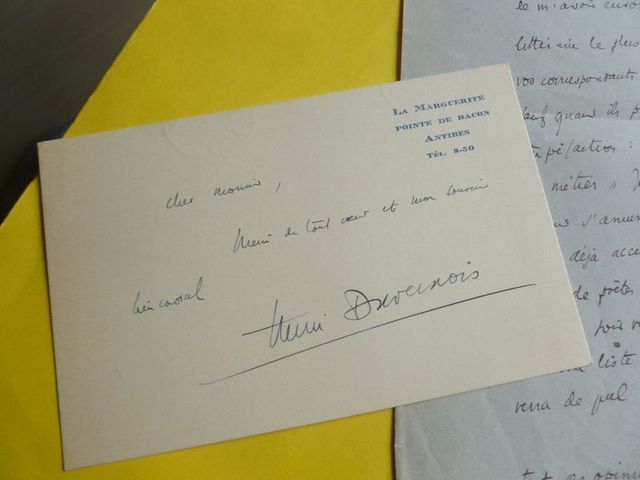 LA MARGUERITE
POINTE DE BACON
ANTIBES
TÉL. 8-50
cher monsieur,
Merci de tout cœur et mon souvenir
bien cordial
Henri Duvernois
le m'avoir
lettre
vos correspondants
sauf quand ils
métier
déjà
de poètes
liste
verra de quel